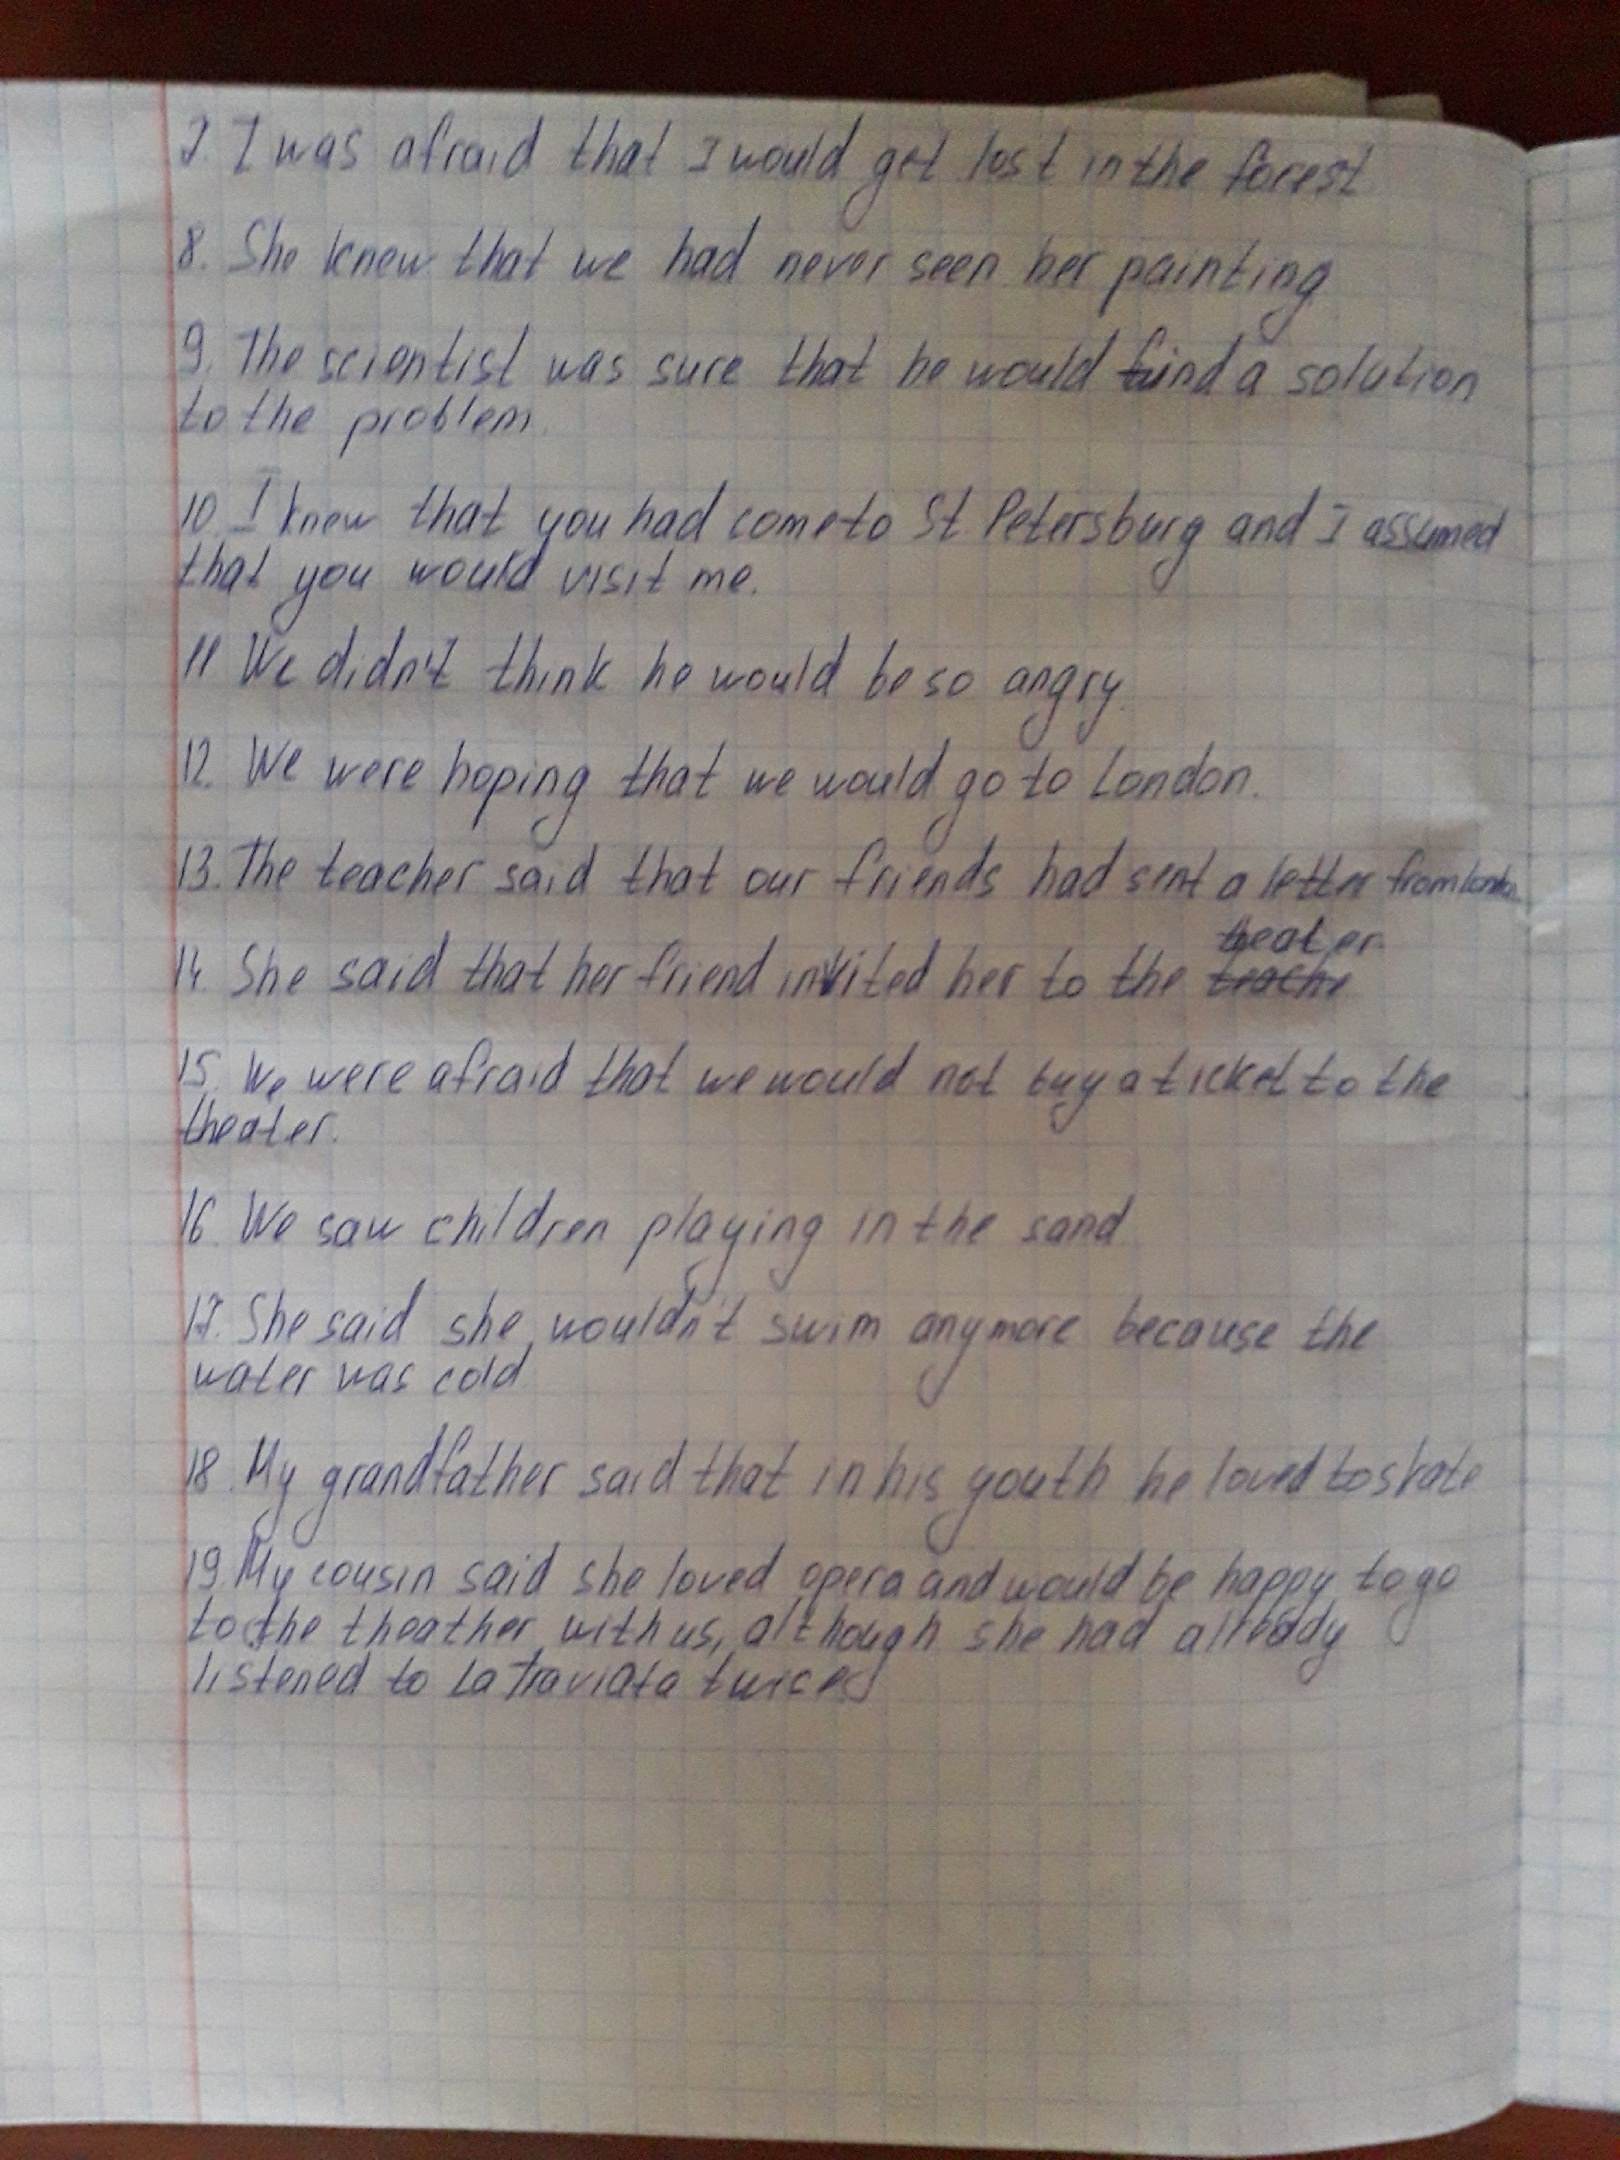 7. I was afraid that I would get lost in the forest
8. She knew that we had never seen her painting
9. The scientist was sure that he would find a solution
to the problem.
10. I knew that you had come to St. Petersburg and I assumed
that you would visit me.
11 We didn't think he would be so angry.
12. We were hoping that we would go to London.
13. The teacher said that our friends had sent a letter from London
theater.
14. She said that her friend invited her to the teache
15. We were afraid that we would not buy a ticket to the
theater.
16. We saw children playing in the sand
17. She said she wouldn't swim anymore because the
water was cold
18. My grandfather said that in his youth he loved to skate
19. My cousin said she loved opera and would be happy to go
to the theather with us, although she had already
listened to La Traviata twice